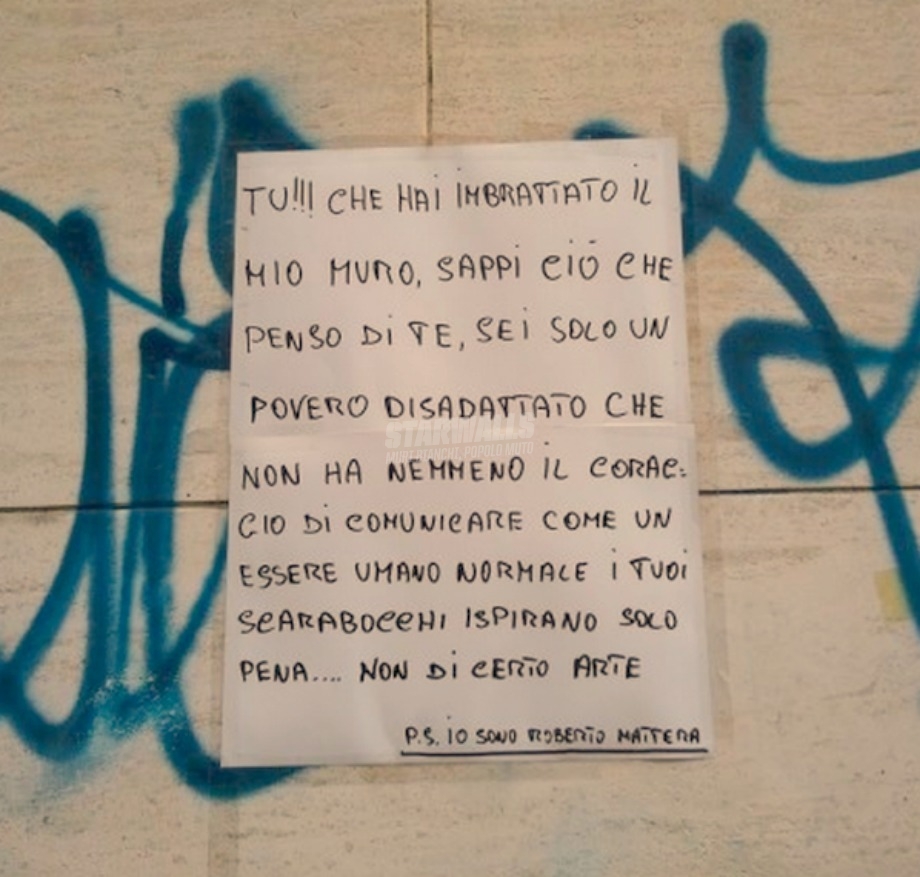 TU!!! CHE HAI IMBRATTATO IL
MIO MURO, SAPPI CIÒ CHE
PENSO DI TE, SEI SOLO UN
POVERO DISADATTATO CHE
STARWALLS
MURI BIANCHI, POPOLO MUTO
NON HA NEMMENO IL CORAG-
GIO DI COMUNICARE COME UN
ESSERE UMANO NORMALE I TUOI
SCARABOCCHI ISPIRANO SOLO
PENA.... NON DI CERTO ARTE
P.S. IO SONO ROBERTO MATTERA